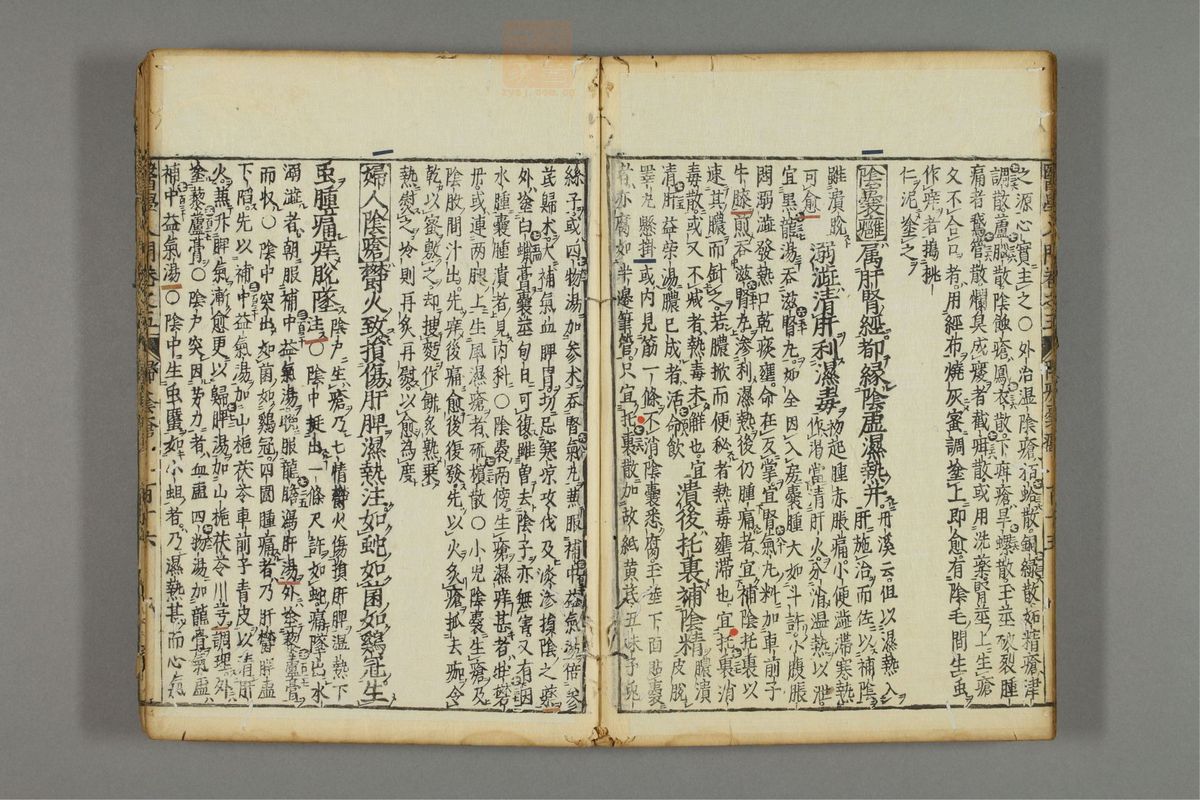 之源心實主之○外治濕陰瘡百蛤散銅綠散如精瘡津
調散蘆腦散陰蝕瘡鳳衣散下疳瘡旱螺散玉莖破裂腫
痛者鵞管散爛臭成癈者截疳散或用洗藥腎莖上生瘡
久不合口者用經布燒灰蜜調塗上即愈有陰毛間生虫
作痒者搗桃
仁泥塗之
陰囊癰属肝腎經都縁陰虛濕熱并丹溪云但以濕熱入
肝施治而佐以補陰
雖潰脫
可愈
溺澁清肝利濕毒
初起腫赤脹痛小便澁滯寒熱
作渴當清肝火
宜黑龍湯吞滋腎丸如全因入房囊腫大如斗許小腹脹
悶溺澁發熱口乾痰壅命在反掌宜腎氣丸料加車前子
牛膝煎吞滋腎丸滲利濕熱後仍腫痛者宜補陰托裏以
速其膿而針之若膿掀而便秘者熱毒壅滞也宜托裏消
毒散或又不減者熱毒未觧也宜
清肝益榮湯膿已成者活命飲
潰後托裏補陰精
膿潰
皮脫
睪丸懸掛或内見筋一條不消陰囊悉腐玉莖下面貼囊
者亦腐如半邊筆管只宜托裏散加故紙黄芪五味子兎
絲子或四物湯加参术吞腎氣丸兼服補中益氣湯倍參
芪歸术大補氣血脾胃切忌寒凉攻伐及淡滲損陰之藥
外塗白蠟膏囊莖旬日可復雖曾去陰子亦無害又有因
水腫囊腫潰者見内科○陰囊兩傍生瘡濕痒甚者
丹或連两腿上生風濕瘡者硫檳散○小児陰囊生瘡及
陰股間汁出先痒後痛愈後復發先以火炙瘡抓去痂令
乾以蜜敷之却搜麪作餅炙熱乗
熱熨之冷則再炙再熨以愈為度
婦人陰瘡欝火致損傷肝脾濕熱注如蛇如菌如鷄冠生
虫腫痛痒脫墜
陰户生瘡乃七情欝火傷損肝脾濕熱下
注○陰中挺出一條尺許如蛇痛墜出水
溺澁者朝服補中益氣湯晩服龍膽瀉肝湯外塗藜蘆膏
而收○陰中突出如菌如鷄冠四圍腫痛者乃肝欝脾虛
下陷先以補中益氣湯加山梔茯苓車前子青皮以清肝
火兼升脾氣漸愈更以歸脾湯加山梔茯苓川芎調理外
塗藜蘆膏○陰户突因勞力者血虛四物湯加龍骨氣虛
補中益氣湯○陰中生虫䘌如小蛆者乃濕熱甚而心氣